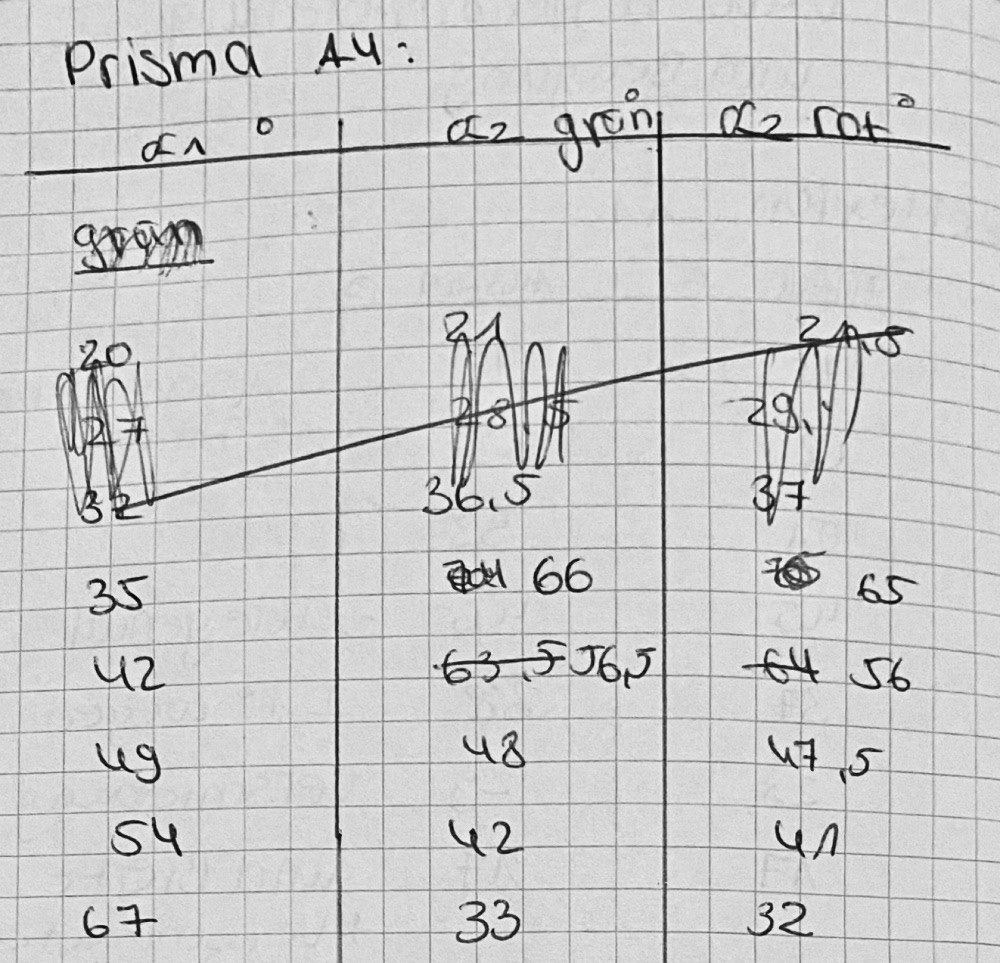 Prisma A4:
α1 ° α2 grün° α2 rot°
grün
20 21 21,5
27 28,5 29,
32 36,5 37
35 66 65
42 63,5 56,5 64 56
49 48 47,5
54 42 41
67 33 32